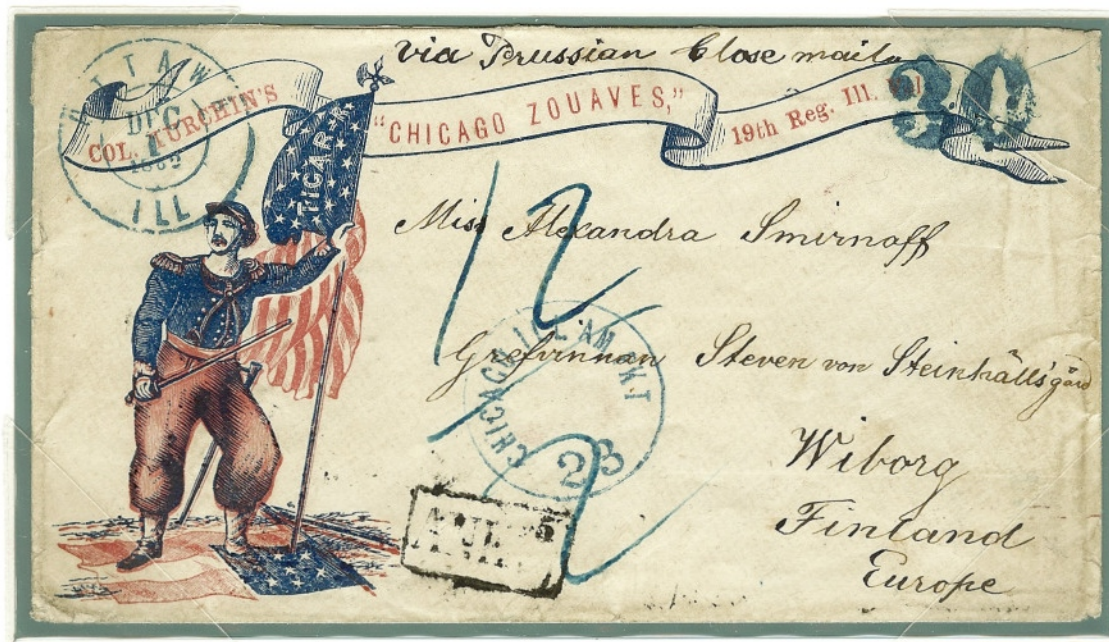 via Prussian Close mail
30
OTTAWA
DEC
1
1862
ILL
COL. TURCHIN'S
"CHICAGO ZOUAVES,"
19th Reg. Ill.
TICAPA
12
Miss Alexandra Smirnoff
CHICAGO ILL AM PKT
23
Grefvinnan Steven von Steinhälls'gård
2
Wiborg
Finland
Europe